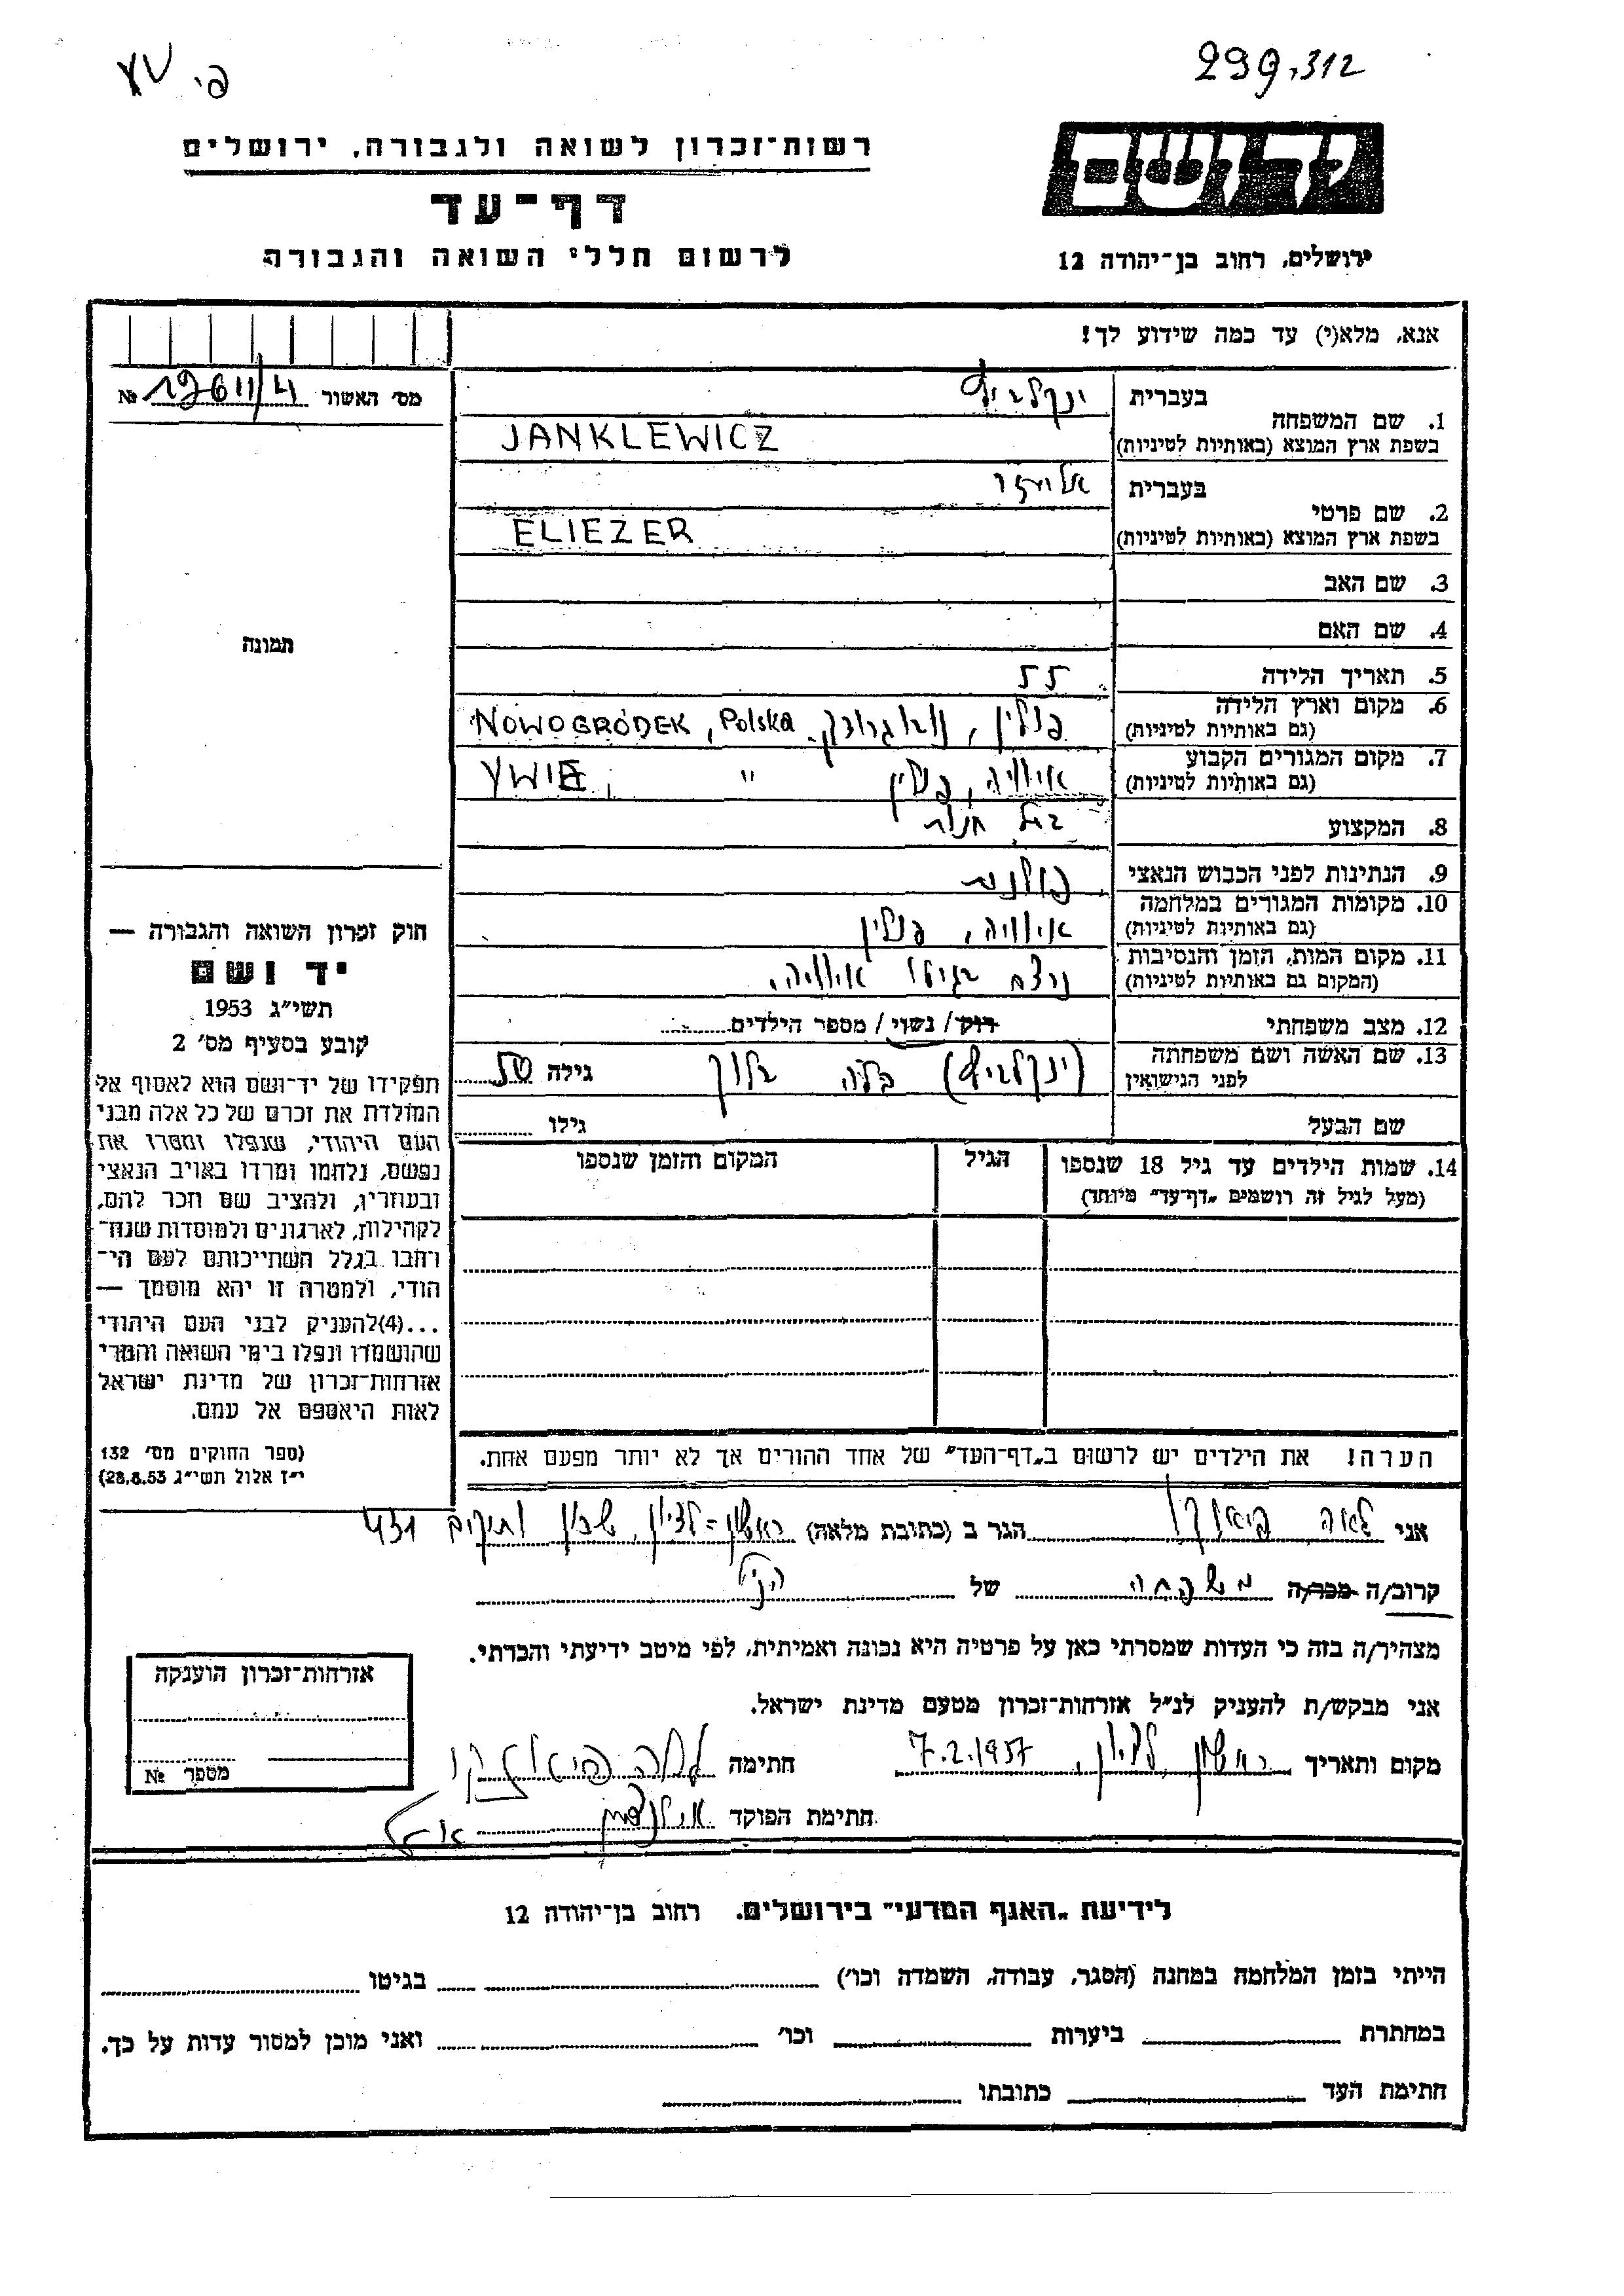 299.312
רשות־זכרון לשואה ולגבורה, ירושלים
דף־עד
לרשום חללי השואה והגבורה
יד ושם
ירושלים, רחוב בן־יהודה 12
אנא, מלא(י) עד כמה שידוע לך!
מס׳ האשור 12611/4 №
תמונה
1. שם המשפחה
בעברית ינקלביץ
בשפת ארץ המוצא (באותיות לטיניות) JANKLEWICZ
2. שם פרטי
בעברית אליעזר
בשפת ארץ המוצא (באותיות לטיניות) ELIEZER
3. שם האב
4. שם האם
5. תאריך הלידה 55
6. מקום וארץ הלידה
(גם באותיות לטיניות) פולין, נובוגרודק. NOWOGRÓDEK, Polska
7. מקום המגורים הקבוע
(גם באותיות לטיניות) איוויה, פולין YWIE, "
8. המקצוע בעל חנות
9. הנתינות לפני הכבוש הנאצי פולנית
10. מקומות המגורים במלחמה
(גם באותיות לטיניות) איוויה, פולין
11. מקום המות, הזמן והנסיבות
(המקום גם באותיות לטיניות) נרצח בגיטו איוויה.
12. מצב משפחתי רוק/ נשוי/ מספר הילדים
13. שם האשה ושם משפחתה
לפני הנישואין (ינקלביץ) בלוך גילה 50
שם הבעל גילו
14. שמות הילדים עד גיל 18 שנספו
(מעל לגיל זה רושמים „דף־עד״ מיוחד)
הגיל
המקום והזמן שנספו
הערה! את הילדים יש לרשום ב„דף־העד״ של אחד ההורים אך לא יותר מפעם אחת.
חוק זכרון השואה והגבורה —
יד ושם
תשי״ג 1953
קובע בסעיף מס׳ 2
תפקידו של יד־ושם הוא לאסוף אל
המולדת את זכרם של כל אלה מבני
העם היהודי, שנפלו ומסרו את
נפשם, נלחמו ומרדו באויב הנאצי
ובעוזריו, ולהציב שם וזכר להם,
לקהילות, לארגונים ולמוסדות שנח־
רבו בגלל השתייכותם לעם הי־
הודי, ולמטרה זו יהא מוסמך —
...(4)להעניק לבני העם היהודי
שהושמדו ונפלו בימי השואה והמרי
אזרחות־זכרון של מדינת ישראל
לאות היאספם אל עמם.
(ספר החוקים מס׳ 132
י״ז אלול תשי״ג 28.8.53)
אני לאה הגר ב (כתובת מלאה) ראשון־לציון, שכון ותיקים 431
קרוב/ה מכר/ה משפחה של הנ״ל
מצהיר/ה בזה כי העדות שמסרתי כאן על פרטיה היא נכונה ואמיתית, לפי מיטב ידיעתי והכרתי.
אני מבקש/ת להעניק לנ״ל אזרחות־זכרון מטעם מדינת ישראל.
מקום ותאריך ראשון לציון, 7.2.1957 חתימה לאה
חתימת הפוקד
אזרחות־זכרון הוענקה
מספר №
לידיעת „האגף המדעי״ בירושלים. רחוב בן־יהודה 12
הייתי בזמן המלחמה במחנה (הסגר, עבודה, השמדה וכו׳) בגיטו
במחתרת ביערות וכו׳ ואני מוכן למסור עדות על כך.
חתימת העד כתובתו